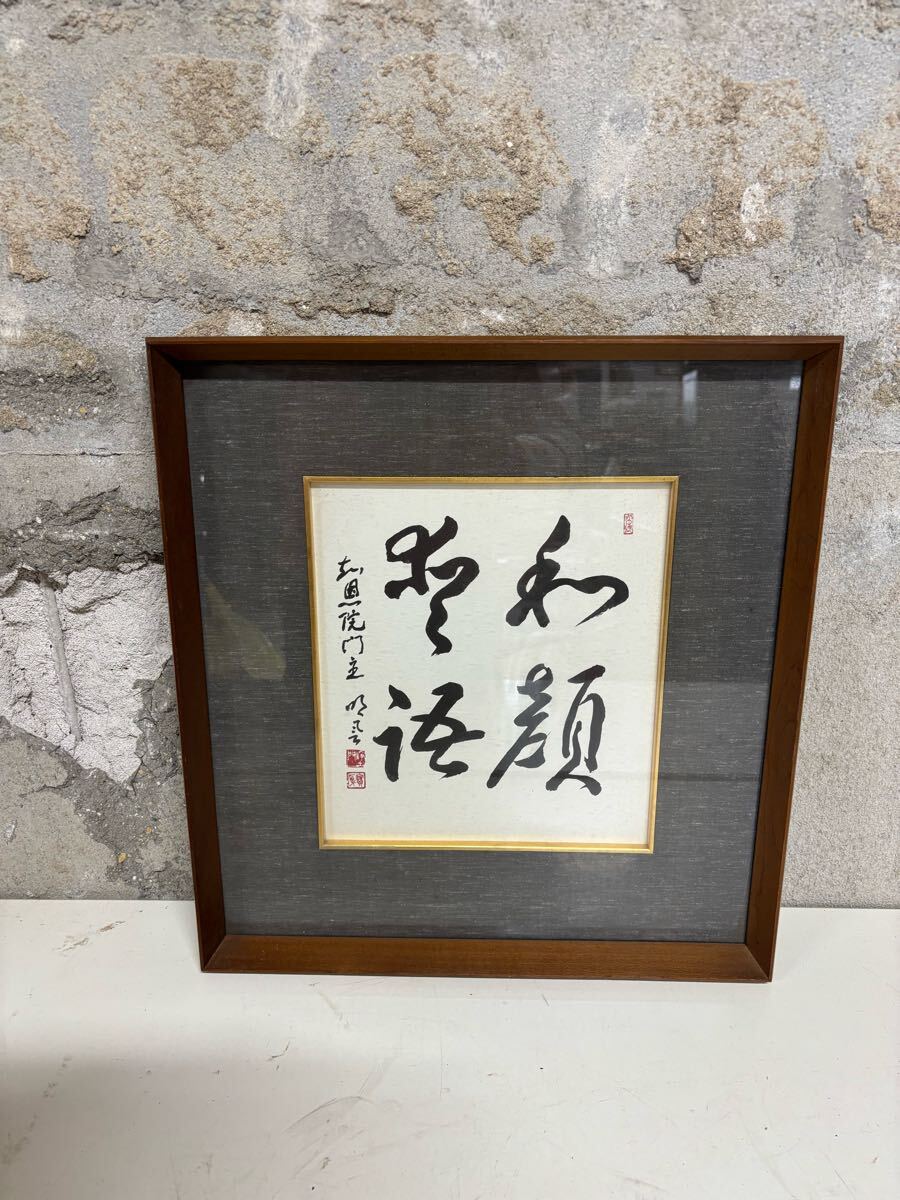 和顔
愛語
知恩院門主 明